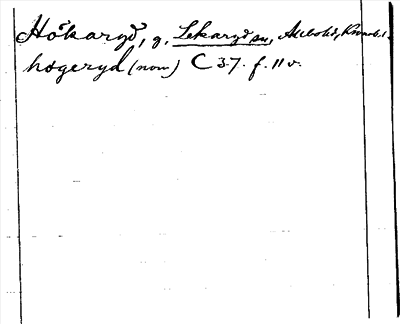 Hökaryd, g. Lekaryd sn, Allbohd, Kronob. l.
høgeryd (nom) C 37. f. 11 v.